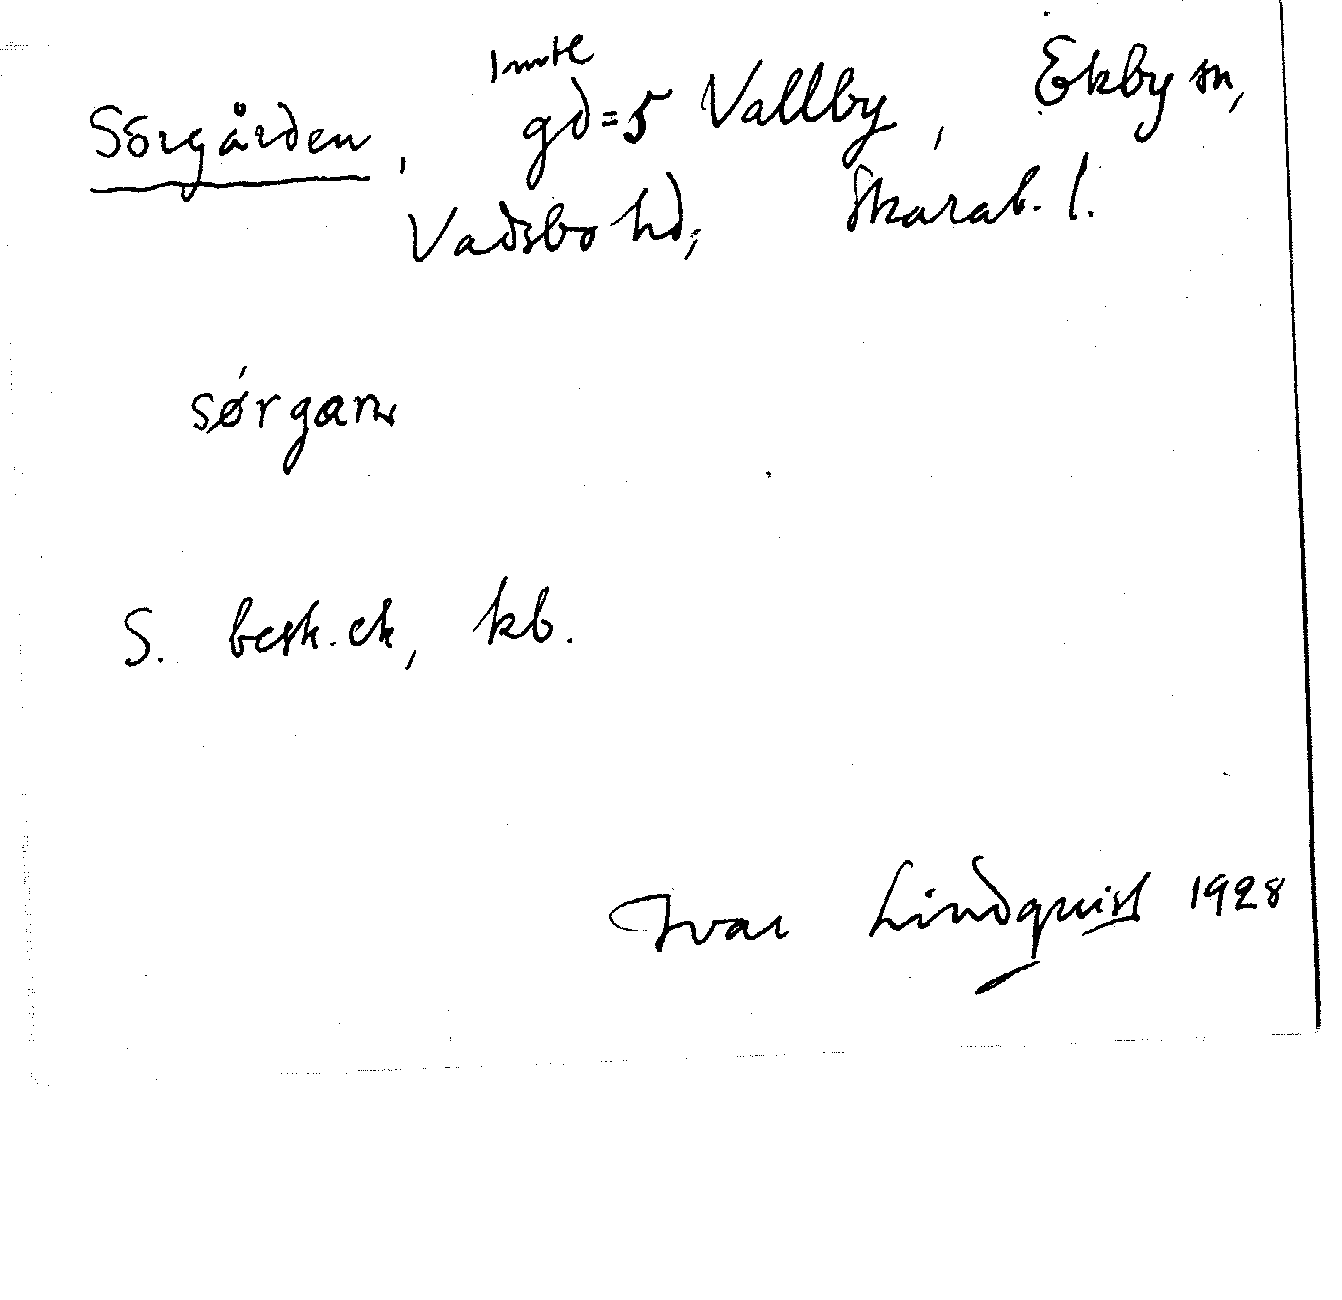 Sörgården, 1 mtl gd = 5 Vallby, Ekby sn,
Vadsbo hd, Skarab. l.
sǿrgan
S. besk. ek, kb.
Ivar Lindquist 1928